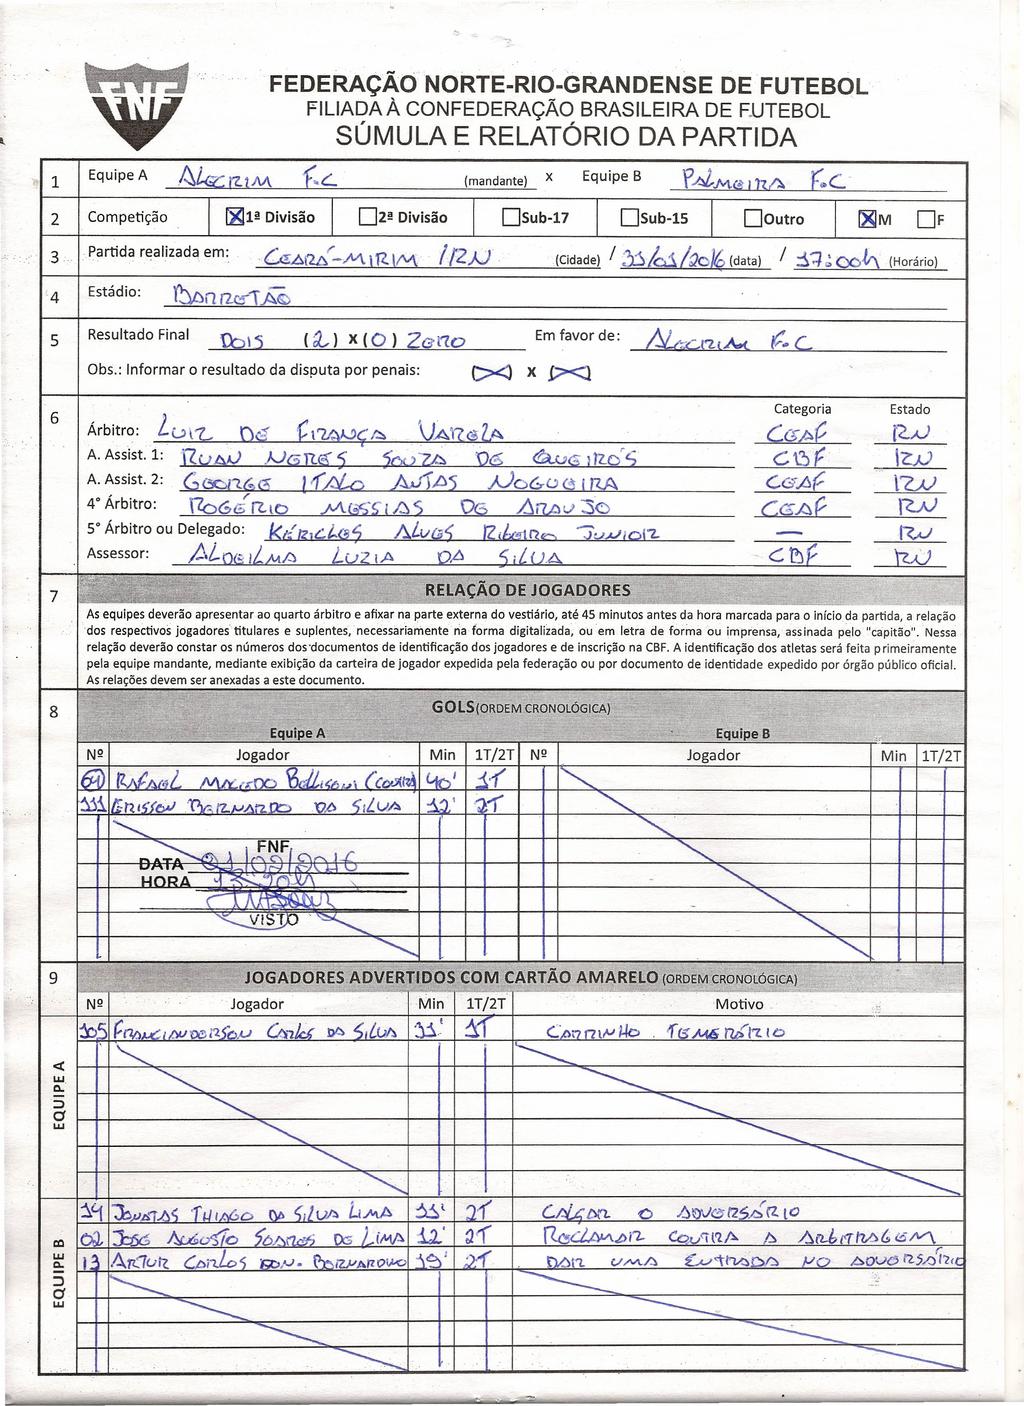 FNF
FEDERAÇÃO NORTE-RIO-GRANDENSE DE FUTEBOL
FILIADA À CONFEDERAÇÃO BRASILEIRA DE FUTEBOL
SÚMULA E RELATÓRIO DA PARTIDA
1 Equipe A ALECRIM F.C (mandante) X Equipe B PALMEIRA F.C
2 Competição ☒1ª Divisão ☐2ª Divisão ☐Sub-17 ☐Sub-15 ☐Outro ☒M ☐F
3 Partida realizada em: CEARÁ-MIRIM / RN (Cidade) / 31/01/2016 (data) / 17:00h (Horário)
4 Estádio: BARRETÃO
5 Resultado Final DOIS (2) X (0) ZERO Em favor de: ALECRIM F.C
Obs.: Informar o resultado da disputa por penais: ( ) X ( )
6 Categoria Estado
Árbitro: LUIZ DE FRANÇA VARELA CEAF RN
A. Assist. 1: RUAN NERES SOUZA DE QUEIRÓS CBF RN
A. Assist. 2: GEORGE ITALO ANTAS NOGUEIRA CEAF RN
4° Árbitro: ROGÉRIO MESSIAS DE ARAUJO CEAF RN
5° Árbitro ou Delegado: KÉRICLES ALVES RIBEIRO JUNIOR — RN
Assessor: ALDEILMA LUZIA DA SILVA CBF RN
7 RELAÇÃO DE JOGADORES
As equipes deverão apresentar ao quarto árbitro e afixar na parte externa do vestiário, até 45 minutos antes da hora marcada para o início da partida, a relação
dos respectivos jogadores titulares e suplentes, necessariamente na forma digitalizada, ou em letra de forma ou imprensa, assinada pelo "capitão". Nessa
relação deverão constar os números dos documentos de identificação dos jogadores e de inscrição na CBF. A identificação dos atletas será feita primeiramente
pela equipe mandante, mediante exibição da carteira de jogador expedida pela federação ou por documento de identidade expedido por órgão público oficial.
As relações devem ser anexadas a este documento.
8 GOLS (ORDEM CRONOLÓGICA)
Equipe A Equipe B
Nº Jogador Min 1T/2T Nº Jogador Min 1T/2T
RAFAEL MACEDO BELLISONI (CONTRA) 40' 1T
111 ERISSON BERNARDO DA SILVA 12' 2T
FNF
DATA 01/02/2016
HORA
VISTO
9 JOGADORES ADVERTIDOS COM CARTÃO AMARELO (ORDEM CRONOLÓGICA)
Nº Jogador Min 1T/2T Motivo
EQUIPE A
105 FRANCIANDERSON CARLOS DA SILVA 31' 1T CARRINHO TEMERÁRIO
EQUIPE B
14 JONATAS THIAGO DA SILVA LIMA 11' 2T CALÇAR O ADVERSÁRIO
02 JOSE AUGUSTO SOARES DE LIMA 12' 2T RECLAMAR CONTRA A ARBITRAGEM
13 ARTUR CARLOS BERNARDINO 19' 2T DAR UMA ENTRADA NO ADVERSÁRIO